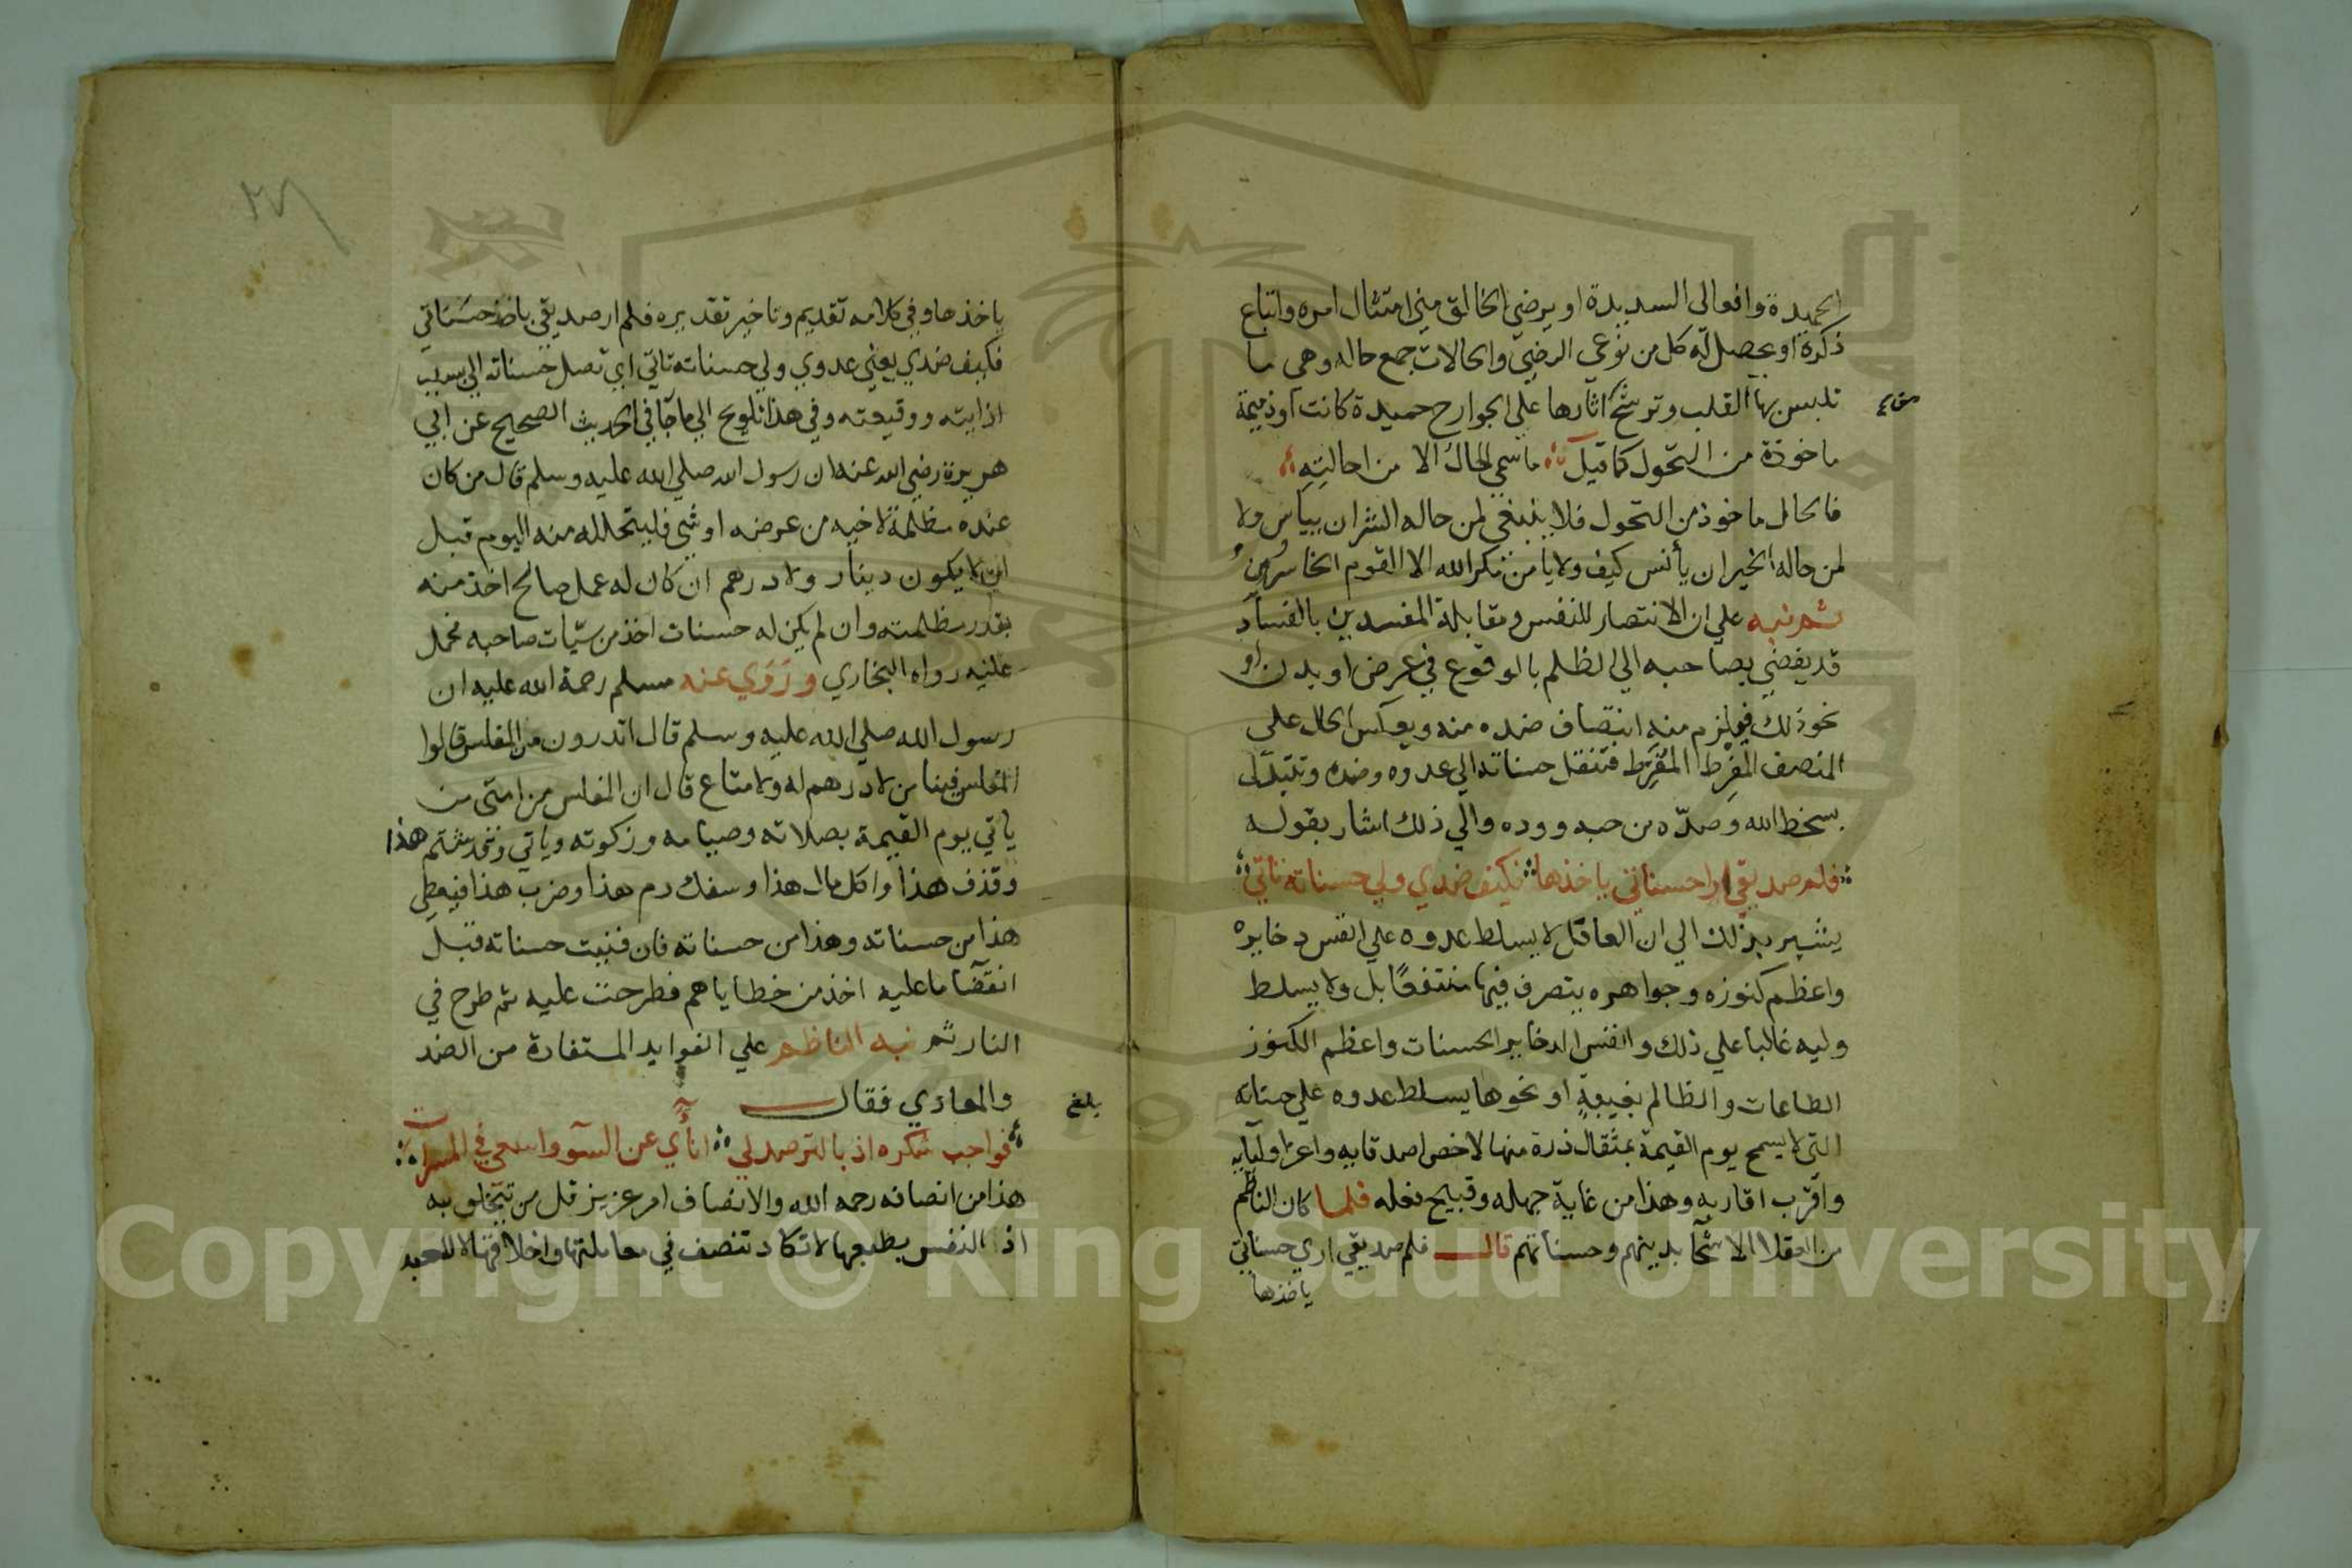 الحميدة وافعالي السديدة او يرضي الخالق مني امتثال امره واتباع
ذكره او يحصل له كل من نوعي الرضي والحالات جمع حاله وهي ما
تلبس بها القلب وترشح اثارها علي الجوارح حميدة كانت او ذميمة
ماخوذة من التحول كما قيل ما سمي الحال الا من احالته
فالحال ماخوذ من التحول فلا ينبغي لمن حاله الشر ان ييأس ولا
لمن حاله الخير ان يأنس كيف ولا يأمن مكر الله الا القوم الخاسرون
ثم نبه علي ان الانتصار للنفس ومقابلة المفسدين بالفساد
قد يفضي بصاحبه الي الظلم بالوقوع في عرض او بدن او
نحو ذلك فيلزم منه انتصاف ضده منه ويعكس الحال علي
المنصف المفرط المفرط فتنقل حسناته الي عدوه وضده وتتبدل
بسخط الله وصده من حبه ووده والي ذلك اشار بقوله
فلم صديقي ارا حسناتي ياخذها فكيف ضدي ولي حسناته تاتي
يشير بذلك الي ان العاقل لا يسلط عدوه علي انفس دخايره
واعظم كنوزه وجواهره يتصرف فيها منتفعا بل ولا يسلط
وليه غالبا علي ذلك وانفس الدخاير الحسنات واعظم الكنوز
الطاعات والظالم بغيبة او نحوها يسلط عدوه علي حسناته
التي لا يسمح يوم القيمة بمثقال ذرة منها لاخص اصدقايه واعز اوليايه
واقرب اقاربه وهذا من غاية جهله وقبيح فعله فلما كان الناظم
من العقلا الاشحا بدينهم وحسناتهم قال فلم صديقي اري حسناتي
ياخذها
ياخذها وفي كلامه تقديم وتاخير تقديره فلم ار صديقي ياخذ حسناتي
فكيف ضدي يعني عدوي ولي حسناته تاتي اي تصل حسناته الي بسبب
اذايته ووقيعته وفي هذا تلويح الي ما جآ في الحديث الصحيح عن ابي
هريرة رضي الله عنه ان رسول الله صلي الله عليه وسلم قال من كان
عنده مظلمة لاخيه من عرضه او شي فليتحلله منه اليوم قبل
ان لا يكون دينار ولا درهم ان كان له عمل صالح اخذ منه
بقدر مظلمته وان لم يكن له حسنات اخذ من سيّات صاحبه فحمل
عليه رواه البخاري وروي عنه مسلم رحمة الله عليه ان
رسول الله صلي الله عليه وسلم قال اتدرون من المفلس قالوا
المفلس فينا من لا درهم له ولا متاع قال ان المفلس من امتي من
ياتي يوم القيمة بصلاته وصيامه وزكوته وياتي وقد شتم هذا
وقذف هذا واكل مال هذا وسفك دم هذا وضرب هذا فيعطي
هذا من حسناته وهذا من حسناته فان فنيت حسناته قبل
انقضا ما عليه اخذ من خطاياهم فطرحت عليه ثم طرح في
النار ثم نبه الناظم علي الفوايد المستفادة من الضد
والمعادي فقال
بلغ
فواجب شكره اذ بالترصد لي انأي عن السو واسعي في المسرات
هذا من انصافه رحمه الله والانصاف امر عزيز قل من يتخلق به
اذ النفس بطبعها لا تكاد تنصف في معاملتها واخلاقها الا للعبد
Copyright © King Saud University